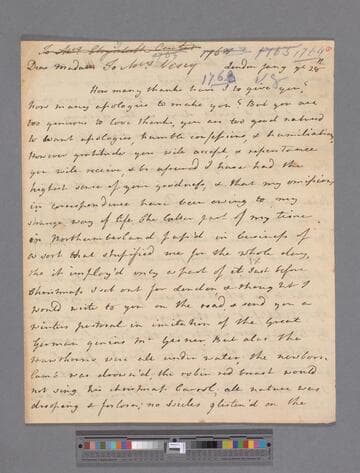 To Mrs Elizabeth Carter 1764 1763 1764
Dear Madam To Mrs Vesey London Jany ye 28th
1768
How many thanks have I to give you,
how many apologies to make you? But you are
too generous to love thanks, you are too good natured
to want apologies, humble confessions, & humiliation,
However gratitude you will accept & repentance
you will receive, & be assured I have had the
highest sense of your goodness, & that my omissions
in correspondence have been owing to my
strange way of life. The latter part of my time
in Northumberland pass'd in business of
a sort that stupified me for the whole day,
tho it imploy'd only a part of it. Just before
Christmass I set out for London & thought I
would write to you on the road & send you a
winter pastoral in imitation of the Great
German genius Mr Gesner. But alas the
hawthorns were all under water the newborn
lamb was drown'd, the robin red breast would
not sing his christmass Carrol, all nature was
drooping & forlorn; no Isicles glisten'd on the